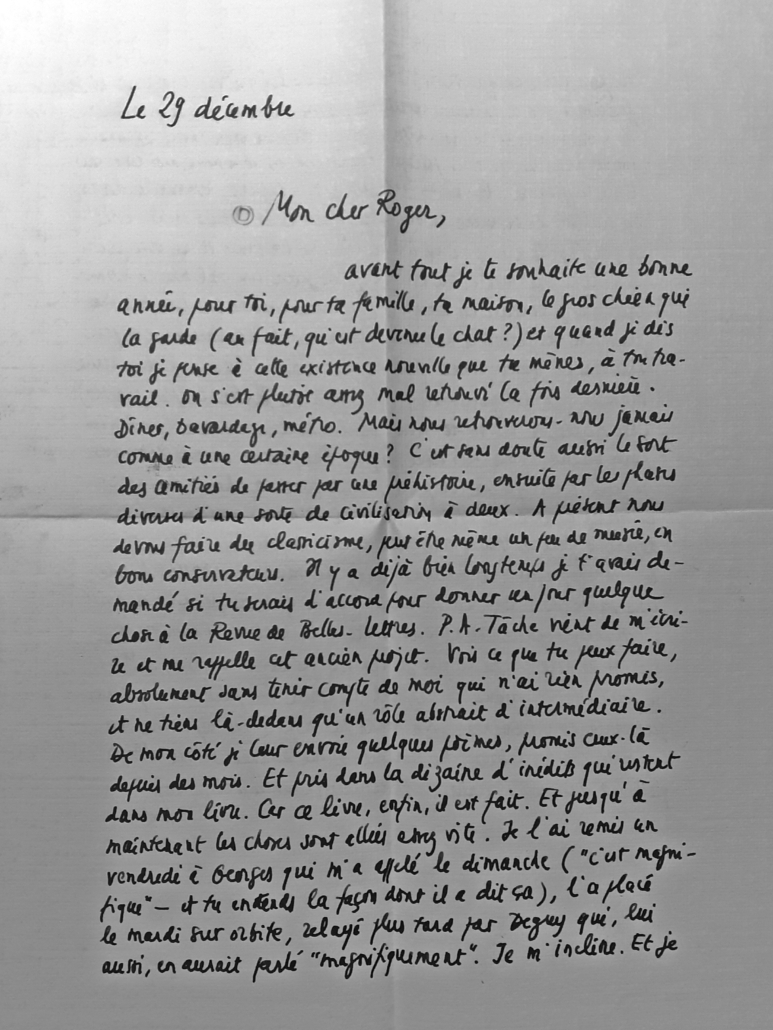 Le 29 décembre
Mon cher Roger,
avant tout je te souhaite une bonne
année, pour toi, pour ta famille, ta maison, le gros chien qui
la garde (au fait, qu'est devenu le chat ?) et quand je dis
toi je pense à cette existence nouvelle que tu mènes, à ton tra-
vail. On s'est plutôt assez mal retrouvé la fois dernière.
Dîner, bavardage, métro. Mais nous retrouverons-nous jamais
comme à une certaine époque ? C'est sans doute aussi le sort
des amitiés de passer par une préhistoire, ensuite par les phases
diverses d'une sorte de civilisation à deux. A présent nous
devons faire du classicisme, peut être même un peu de musée, en
bons conservateurs. Il y a déjà bien longtemps je t'avais de-
mandé si tu serais d'accord pour donner un jour quelque
chose à la Revue de Belles-Lettres. P.A. Tâche vient de m'écri-
re et me rappelle cet ancien projet. Vois ce que tu peux faire,
absolument sans tenir compte de moi qui n'ai rien promis,
et ne tiens là-dedans qu'un rôle abstrait d'intermédiaire.
De mon côté je leur envoie quelques poèmes, promis ceux-là
depuis des mois. Et pris dans la dizaine d'inédits qui restent
dans mon livre. Car ce livre, enfin, il est fait. Et jusqu'à
maintenant les choses sont allées assez vite. Je l'ai remis un
vendredi à Georges qui m'a appelé le dimanche ("c'est magni-
fique" – et tu entends la façon dont il a dit ça), l'a placé
le mardi sur orbite, relayé plus tard par Deguy qui, lui
aussi, en aurait parlé "magnifiquement". Je m'incline. Et je